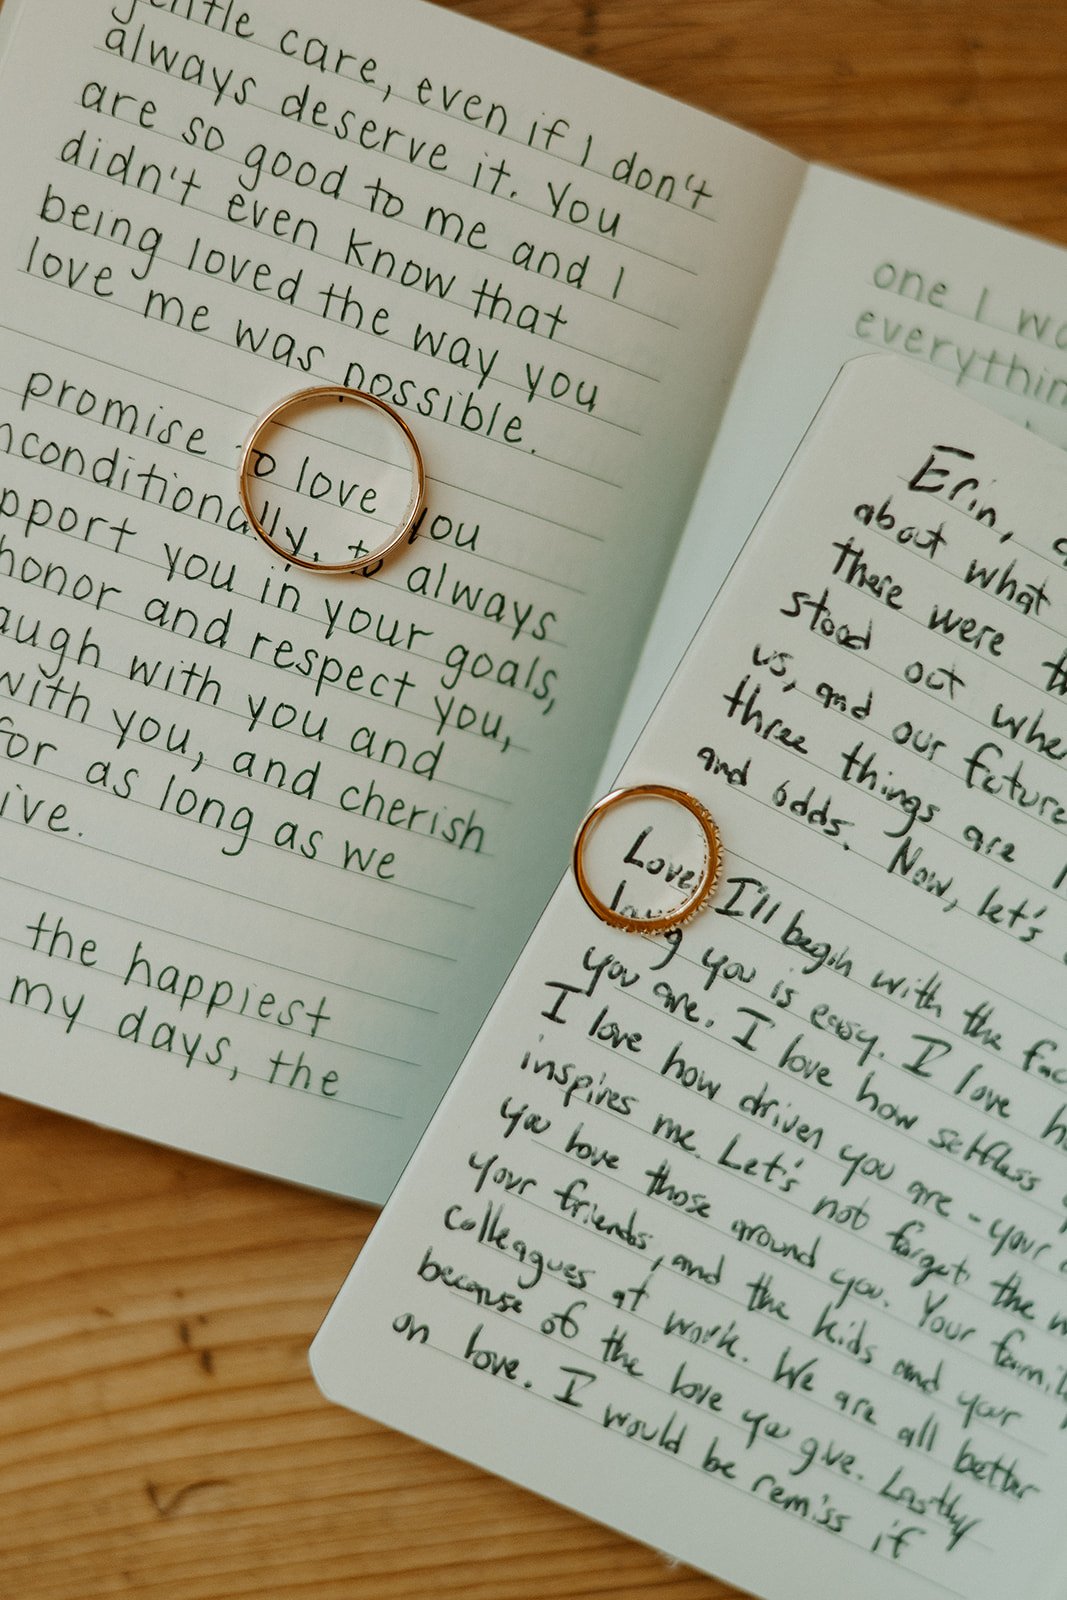 gentle care, even if I don't
always deserve it. You
are so good to me and I
didn't even know that
being loved the way you
love me was possible.
promise to love you
unconditionally, to always
support you in your goals,
honor and respect you,
laugh with you and
with you, and cherish
for as long as we
live.
the happiest
my days, the
one I
everything
Erin,
about what
there were
stood out
us, and our future
three things are
and odds. Now, let's
Love, I'll begin with the
loving you is easy. I love
you are. I love how selfless
I love how driven you are - your
inspires me. Let's not forget the
you love those around you. Your family
your friends, and the kids and your
colleagues at work. We are all better
because of the love you give. Lastly
on love. I would be remiss if